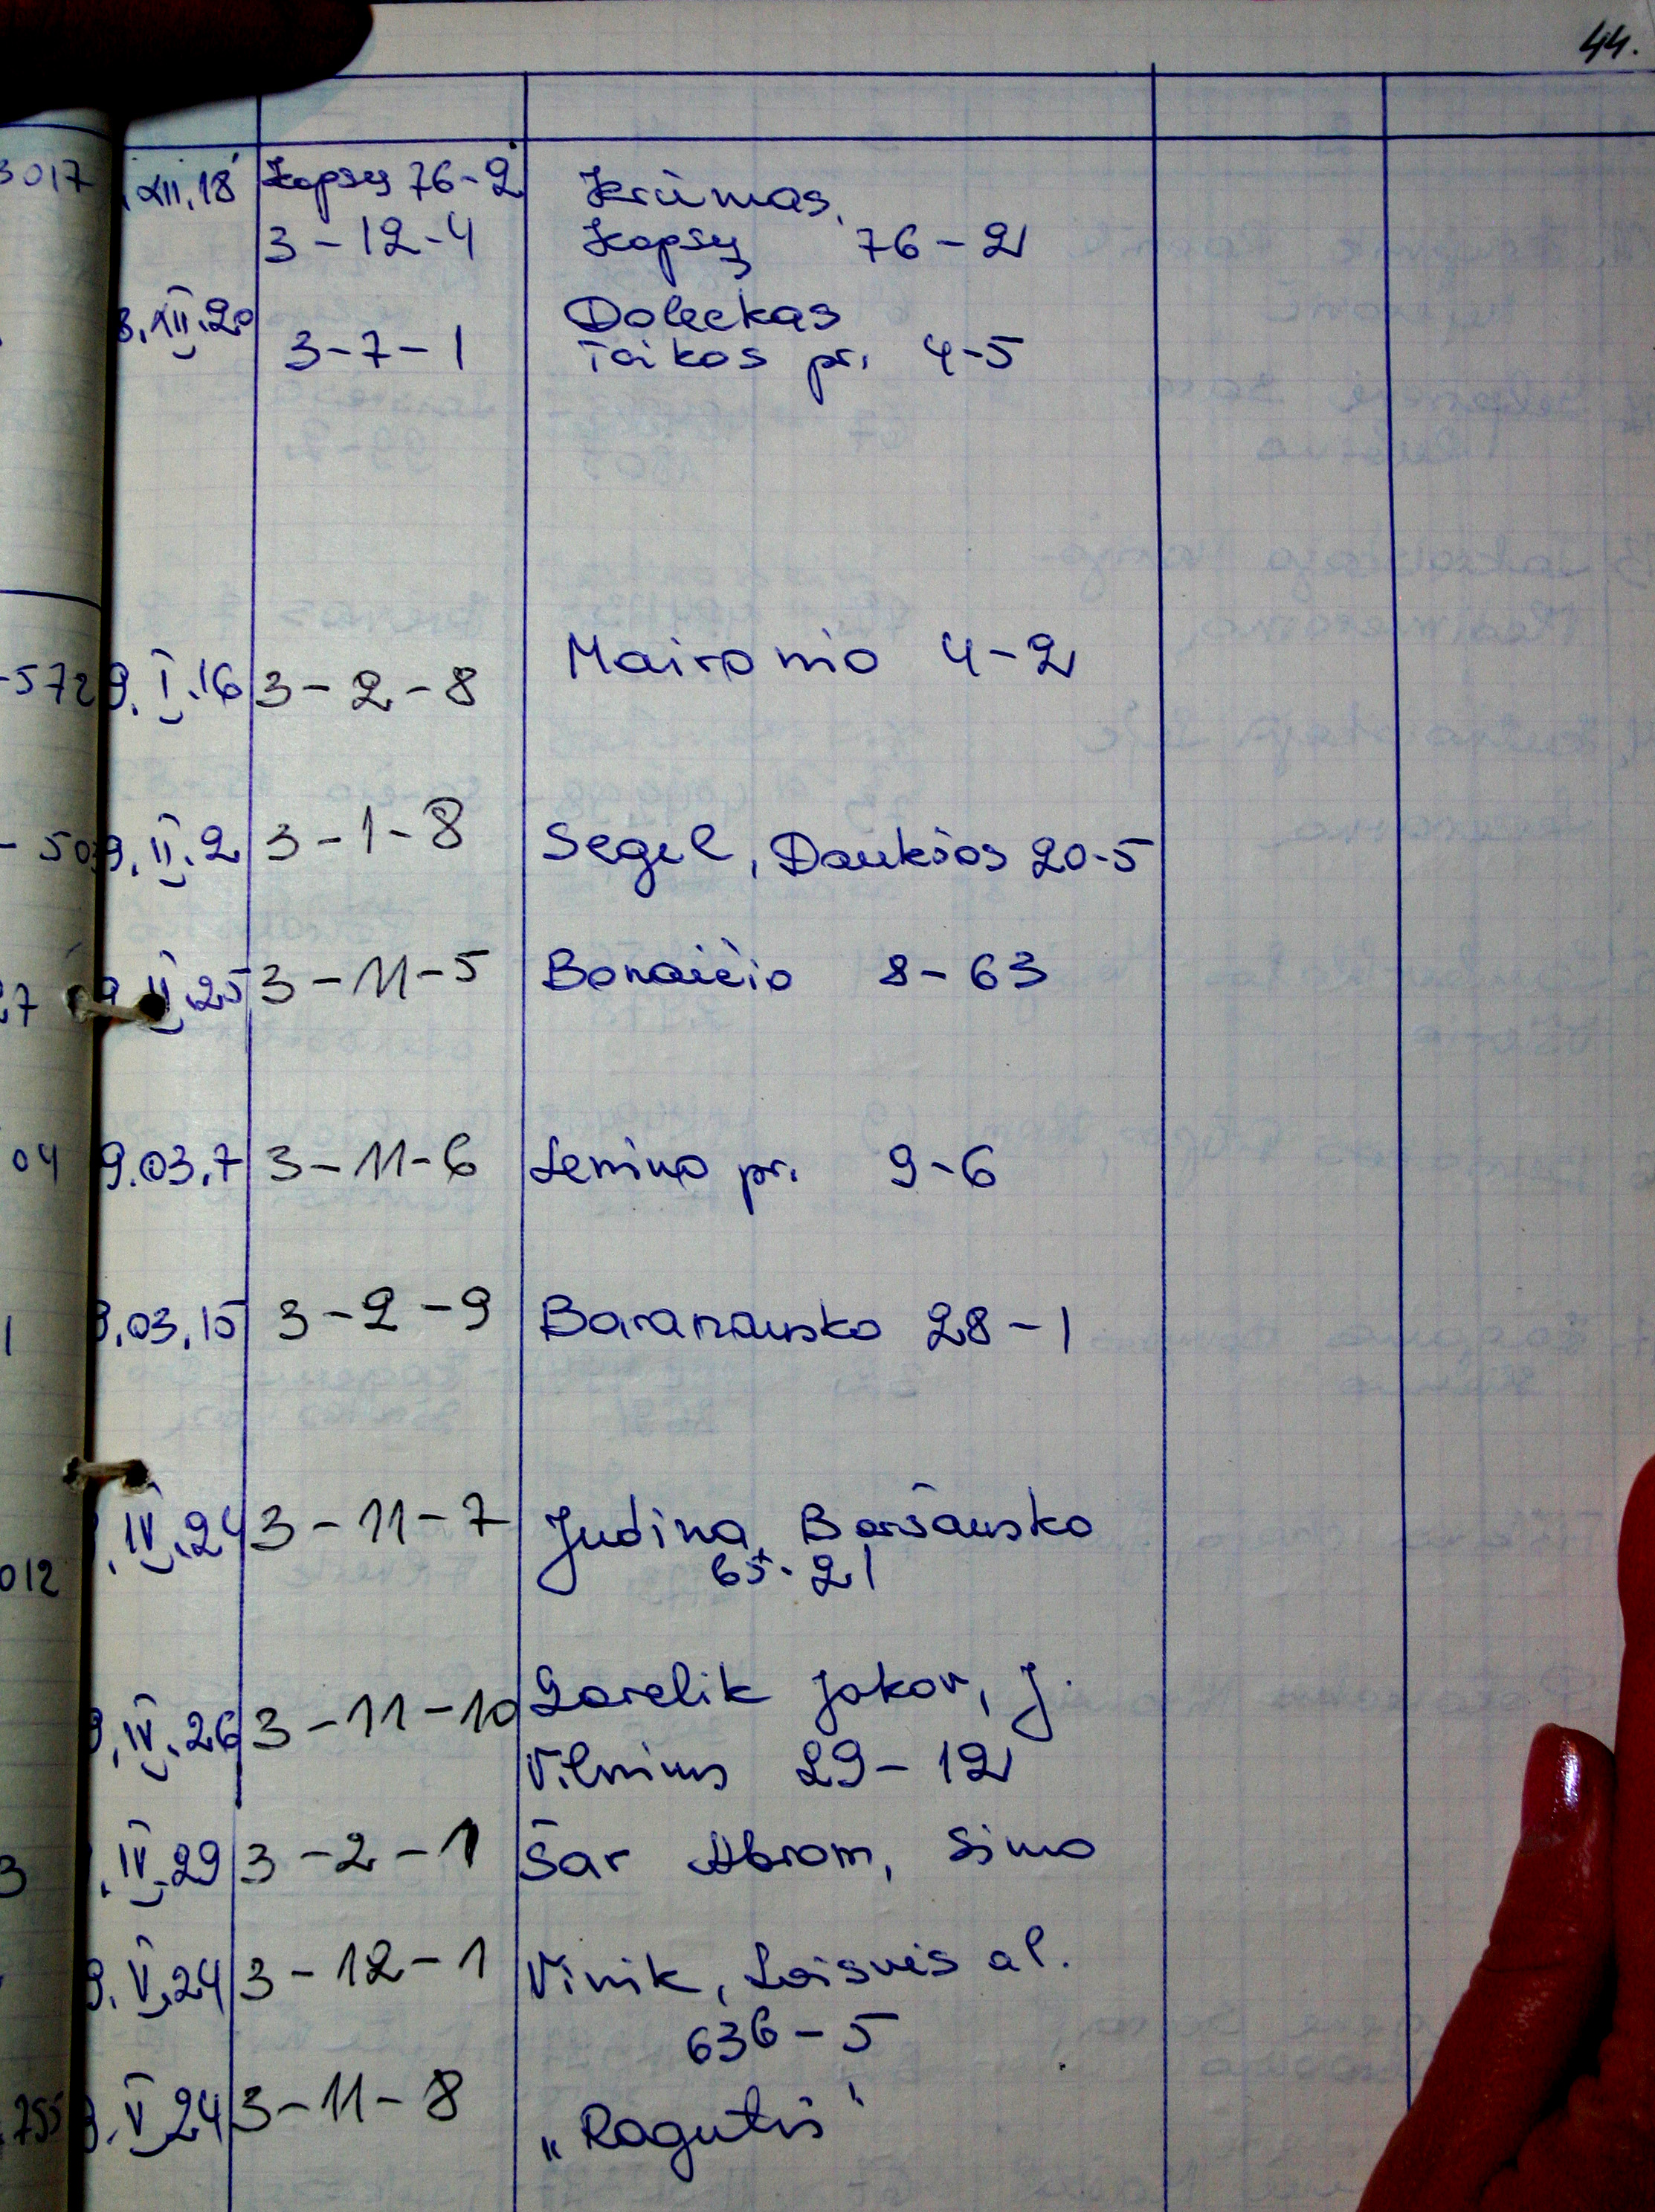 44.
3017 XII.18 Kapsų 76-2 Krūmas,
3-12-4 Kapsų 76-2
XII.20 Doleckas
3-7-1 Taikos pr. 4-5
-572 9.I.16 3-2-8 Maironio 4-2
-50 9.II.2 3-1-8 Segel, Daukšos 20-5
27 9.II.25 3-11-5 Bonaičio 8-63
04 9.03.7 3-11-6 Lenino pr. 9-6
1 9.03.15 3-2-9 Baranausko 28-1
.IV.24 3-11-7 Judina, Baršausko
012 65-21
Garelik Jakov, J.
9.IV.26 3-11-10
Vilniaus 29-12
3 .IV.29 3-2-1 Šar Abrom, Simo
9.V.24 3-12-1 Vinik, Laisvės al.
636-5
755 9.V.24 3-11-8 „Ragutis"